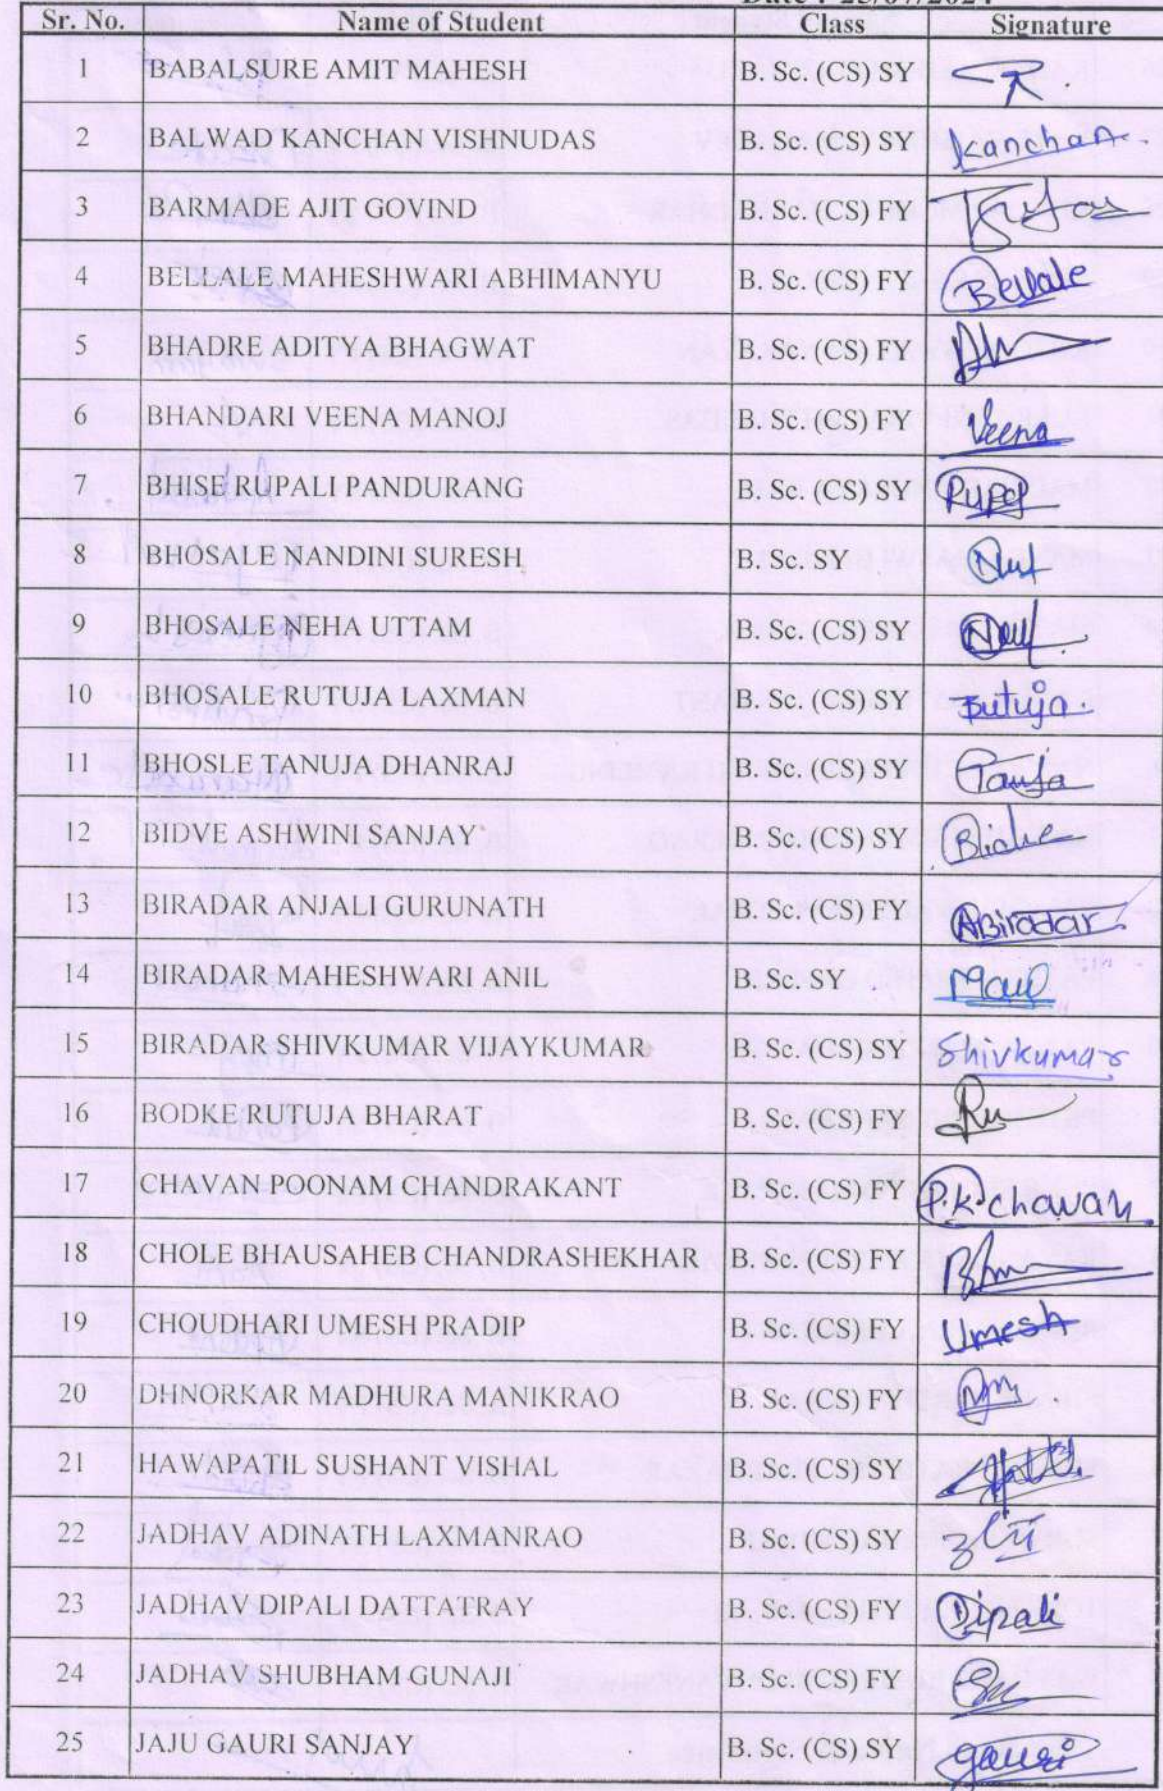 Date : 25/07/2024
Sr. No. Name of Student Class Signature
1 BABALSURE AMIT MAHESH B. Sc. (CS) SY
2 BALWAD KANCHAN VISHNUDAS B. Sc. (CS) SY Kanchan.
3 BARMADE AJIT GOVIND B. Sc. (CS) FY
4 BELLALE MAHESHWARI ABHIMANYU B. Sc. (CS) FY Bellale
5 BHADRE ADITYA BHAGWAT B. Sc. (CS) FY
6 BHANDARI VEENA MANOJ B. Sc. (CS) FY Veena
7 BHISE RUPALI PANDURANG B. Sc. (CS) SY
8 BHOSALE NANDINI SURESH B. Sc. SY
9 BHOSALE NEHA UTTAM B. Sc. (CS) SY
10 BHOSALE RUTUJA LAXMAN B. Sc. (CS) SY Rutuja.
11 BHOSLE TANUJA DHANRAJ B. Sc. (CS) SY
12 BIDVE ASHWINI SANJAY B. Sc. (CS) SY
13 BIRADAR ANJALI GURUNATH B. Sc. (CS) FY ABiradar
14 BIRADAR MAHESHWARI ANIL B.Sc. SY
15 BIRADAR SHIVKUMAR VIJAYKUMAR B. Sc. (CS) SY Shivkumar
16 BODKE RUTUJA BHARAT B. Sc. (CS) FY Ru
17 CHAVAN POONAM CHANDRAKANT B. Sc. (CS) FY P.K.chavan.
18 CHOLE BHAUSAHEB CHANDRASHEKHAR B. Sc. (CS) FY
19 CHOUDHARI UMESH PRADIP B. Sc. (CS) FY Umesh
20 DHNORKAR MADHURA MANIKRAO B. Sc. (CS) FY
21 HAWAPATIL SUSHANT VISHAL B. Sc. (CS) SY
22 JADHAV ADINATH LAXMANRAO B. Sc. (CS) SY
23 JADHAV DIPALI DATTATRAY B. Sc. (CS) FY Dipali
24 JADHAV SHUBHAM GUNAJI B. Sc. (CS) FY
25 JAJU GAURI SANJAY B. Sc. (CS) SY gauri